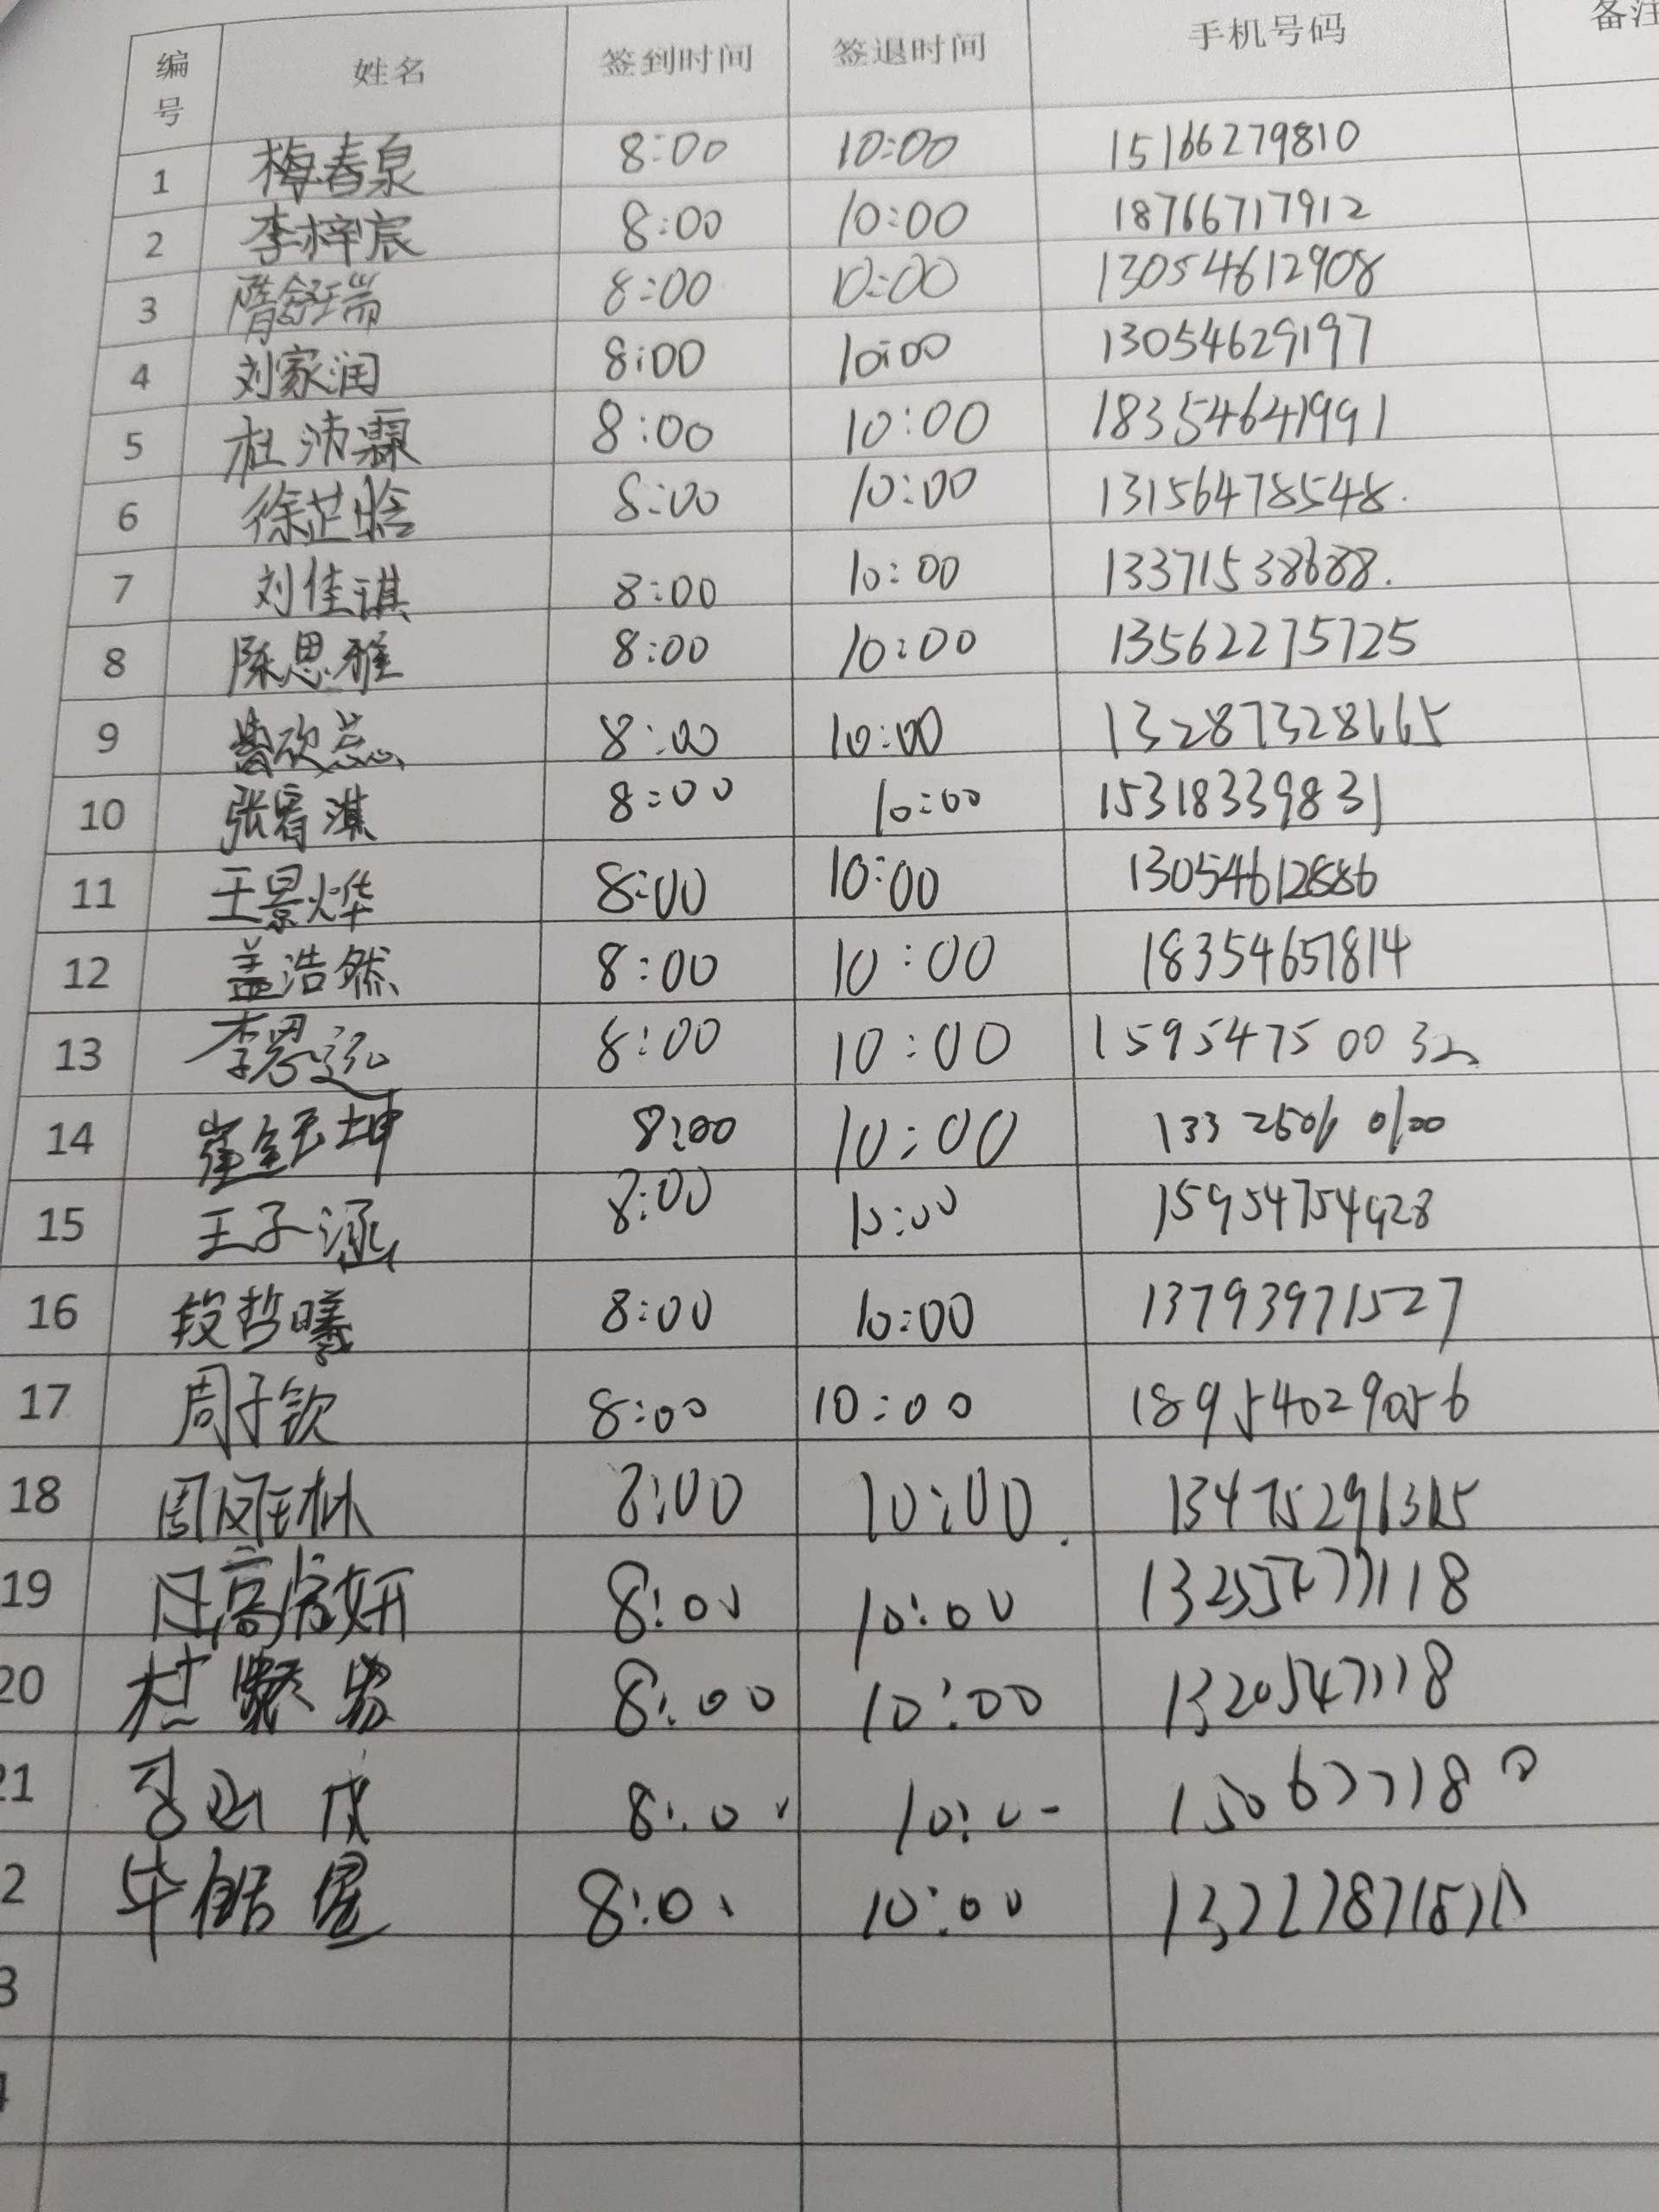 编号 姓名 签到时间 签退时间 手机号码 备注
1 梅春泉 8:00 10:00 15166279810
2 李梓宸 8:00 10:00 18766717912
3 隋舒瑞 8:00 10:00 13054612908
4 刘家润 8:00 10:00 13054629197
5 杜沛霖 8:00 10:00 18354641991
6 徐芷晗 8:00 10:00 13156478548.
7 刘佳琪 8:00 10:00 13371538688.
8 陈思雅 8:00 10:00 13562275725
9 8:00 10:00 13287328665
10 张睿淇 8:00 10:00 15318339831
11 王景烨 8:00 10:00 13054612886
12 盖浩然 8:00 10:00 18354651814
13 李思泓 8:00 10:00 15954750032
14 崔钰坤 8:00 10:00
15 王子涵 8:00 10:00 15954754928
16 段哲曦 8:00 10:00 13793971527
17 周子钦 8:00 10:00 18954029056
18 8:00 10:00
19 8:00 10:00
20 8:00 10:00 1320547118
21 8:00 10:0
2 8:0 10:00
3